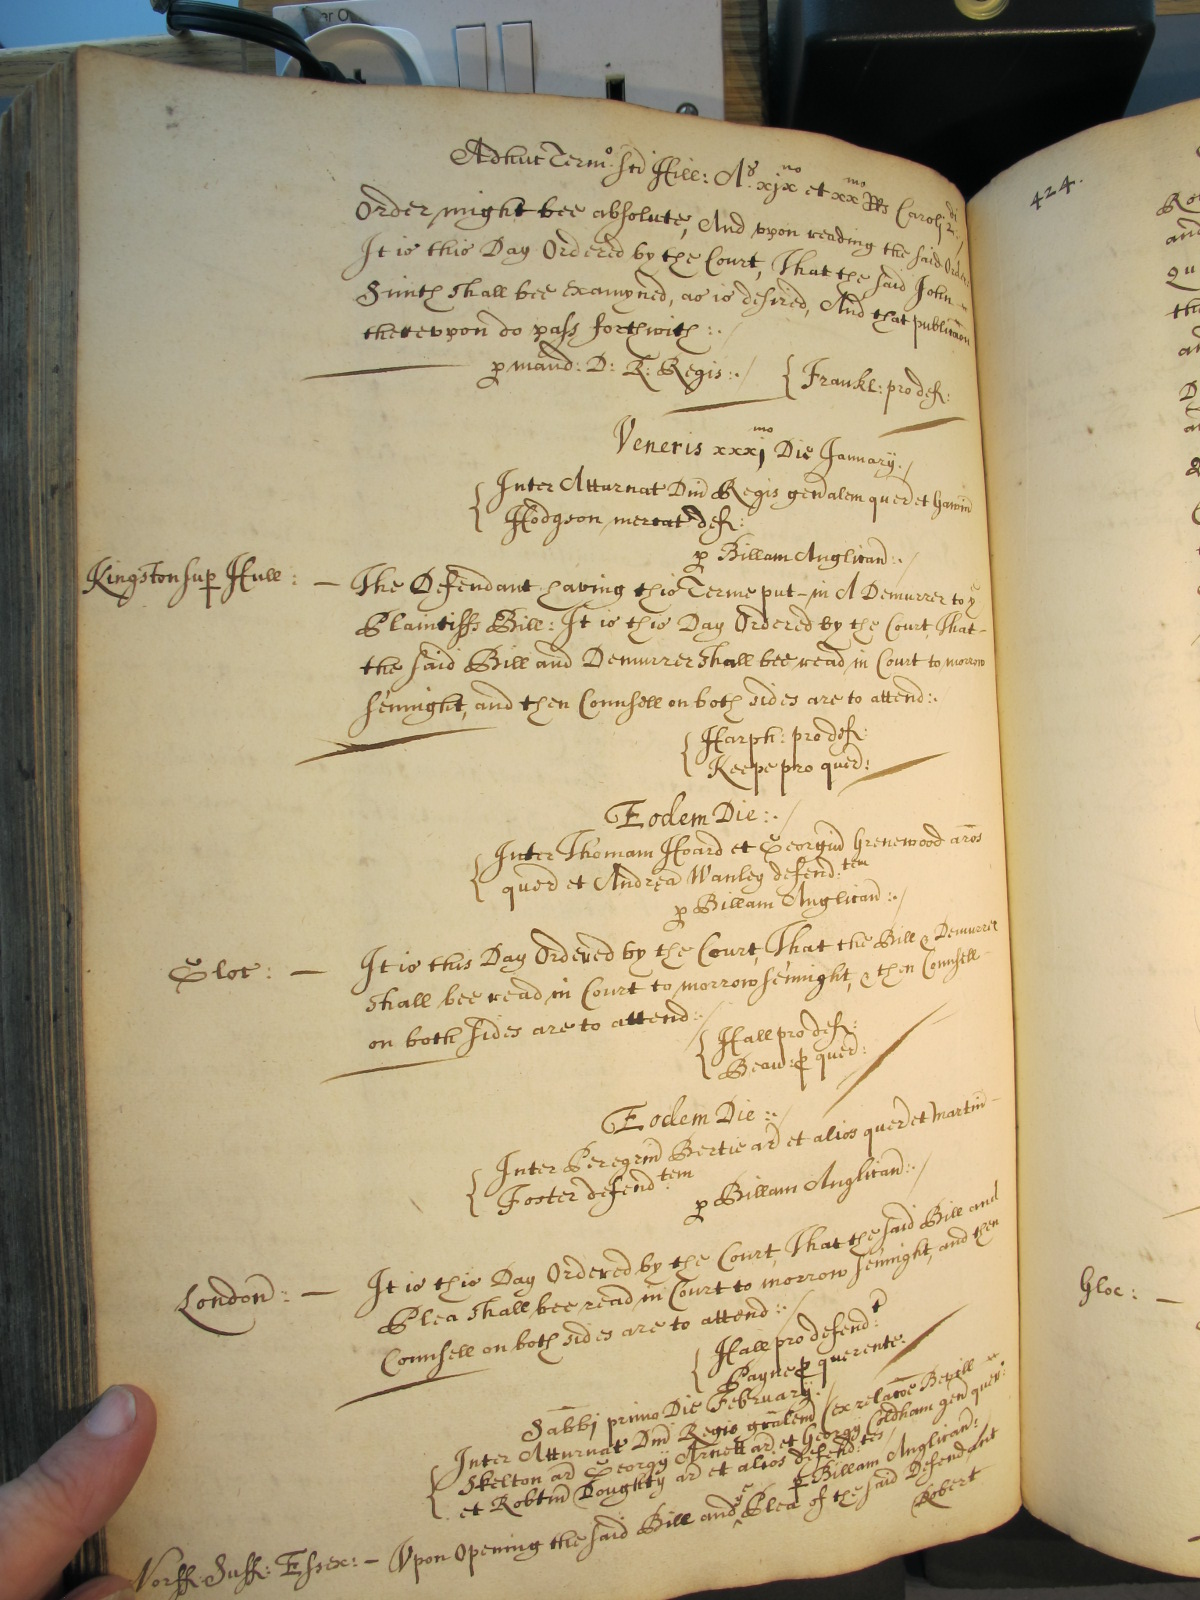 Adhuc Termo: Sci Hill: Ao. xjxno et xxmo RRs Caroli 2di./
Order might bee absolute, And vpon reading the said Order
It is this Day Ordered by the Court, That the said John
Smith shall bee examyned, as is desired, And that publicacon
therevpon do pass forthwith :./
p mand: D: R: Regis:./ Frankl: pro def:
424.
Veneris xxxjmo Die January./
Inter Atturnat Dni Regis gen'alem quer et
Hodgson mercat def:
p Billam Anglican:./
Kingston sup Hull: – The Defendant having this Terme put in A Demurrer to ye
Plaintiffs Bill: It is this Day Ordered by the Court, That
the said Bill and Demurrer shall bee read in Court to morrow
sennight, and then Counsell on both sides are to attend:.
Harph: pro def:
Keepe pro quer:
Eodem Die:./
Inter Thomam Hoard et Georgiu Grenewood aros
quer et Andrea Wanley defend:tem
p Billam Anglican:./
Gloc: – It is this Day Ordered by the Court, That the Bill & Demurrer
shall bee read in Court to morrow sennight, & then Counsell
on both sides are to attend:./
Hall pro def:
Beau: p quer:
Eodem Die:./
Inter Peregrin Bertie ar et alios quer et Martin
Foster defendtem
p Billam Anglican:./
London: – It is this Day Ordered by the Court, That the said Bill and
Plea shall bee read in Court to morrow sennight, and then
Counsell on both sides are to attend:./
Hall pro defend:t
Payne p querente:
Sabbi primo Die February:./
Inter Atturnat Dni Regis gralem (ex relacoe Bevill
Skelton ar Georgij Arnett ar et Georgij Coldham gen quer:
et Robtm Doughty ar et alios defend:tes/
p Billam Anglican:
Norff: Suff: Essex: – Vpon Opening the said Bill and ye Plea of the said Defendant
Robert
Gloc: –